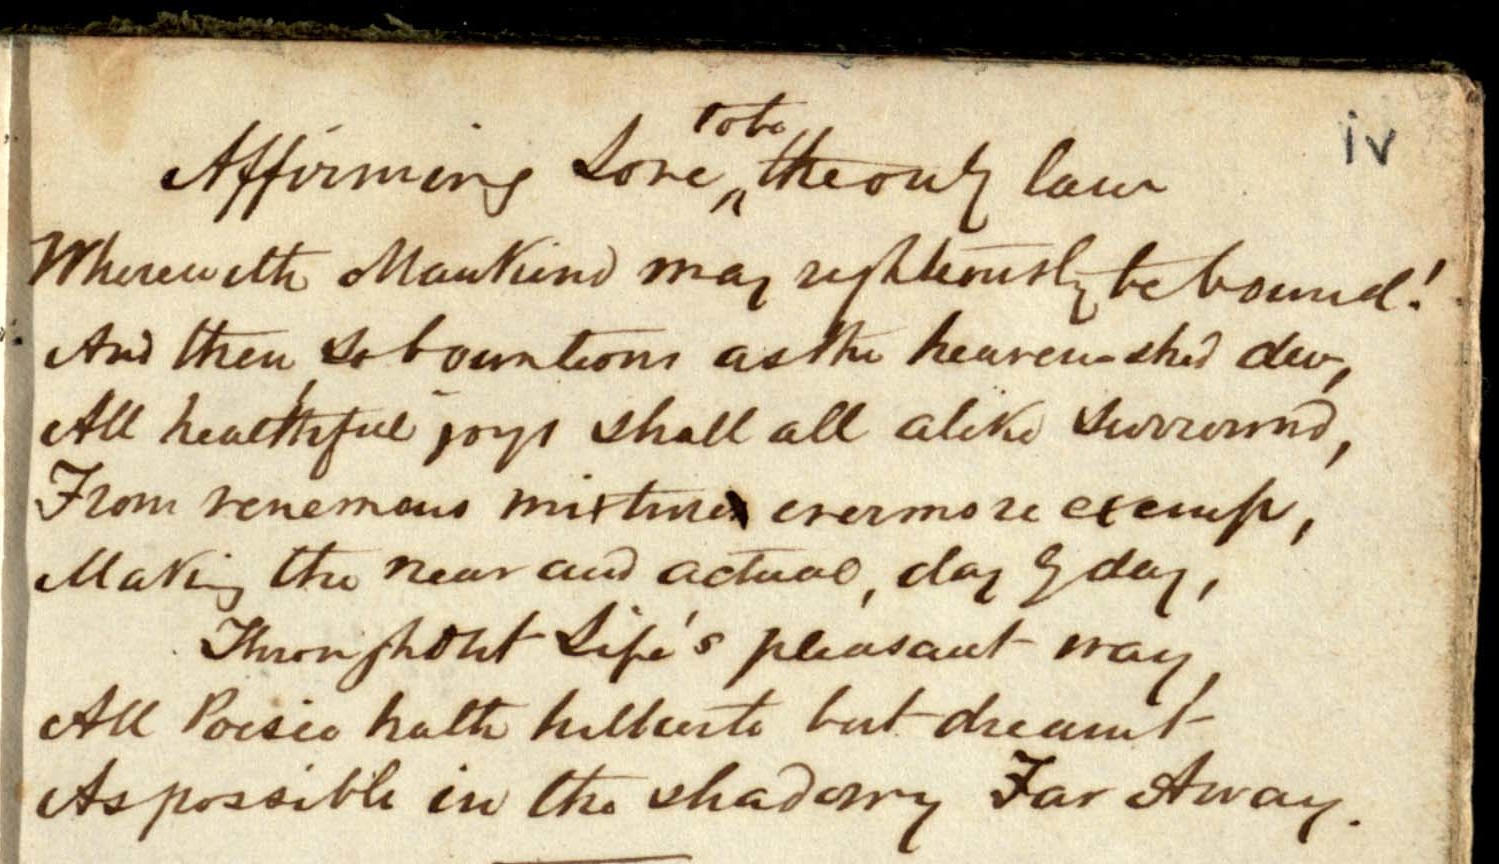 iv
to be
Affirming Love ‸ the only law
Wherewith Mankind may righteously be bound!
And then, so bounteous as the heaven-shed dew,
All healthful joys shall all alike surround,
From venemous mixture evermore exempt,
Making the near and actual, day by day,
Throughout Life's pleasant way,
All Poesie hath hitherto but dreamt
As possible in the shadowy Far Away.